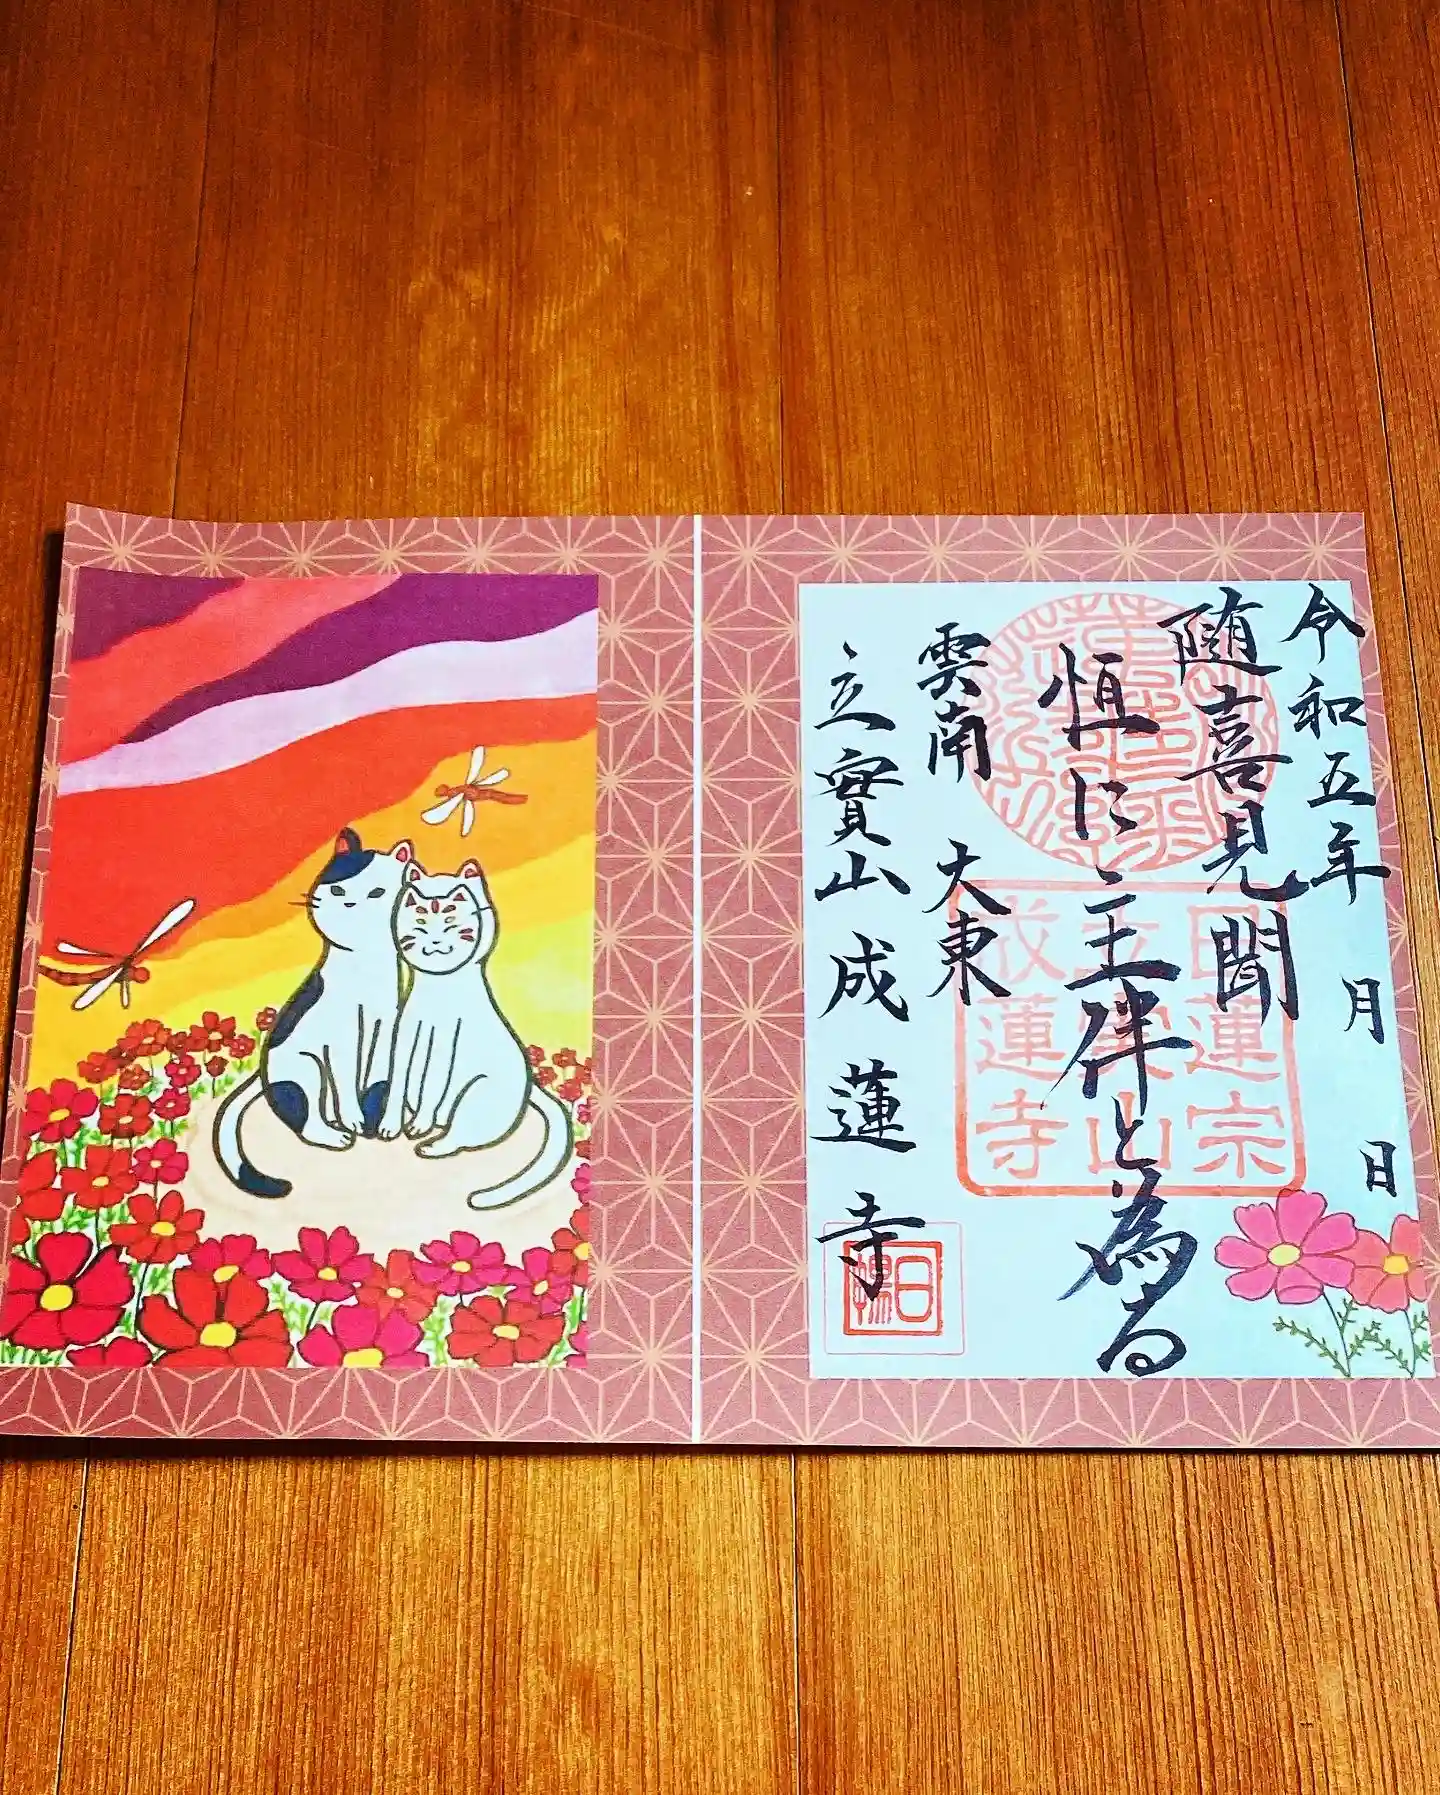 令和五年 月 日
随喜見聞
恒に主伴と為る
雲南 大東
立寶山 成蓮寺
日蓮宗
立寶山
成蓮寺